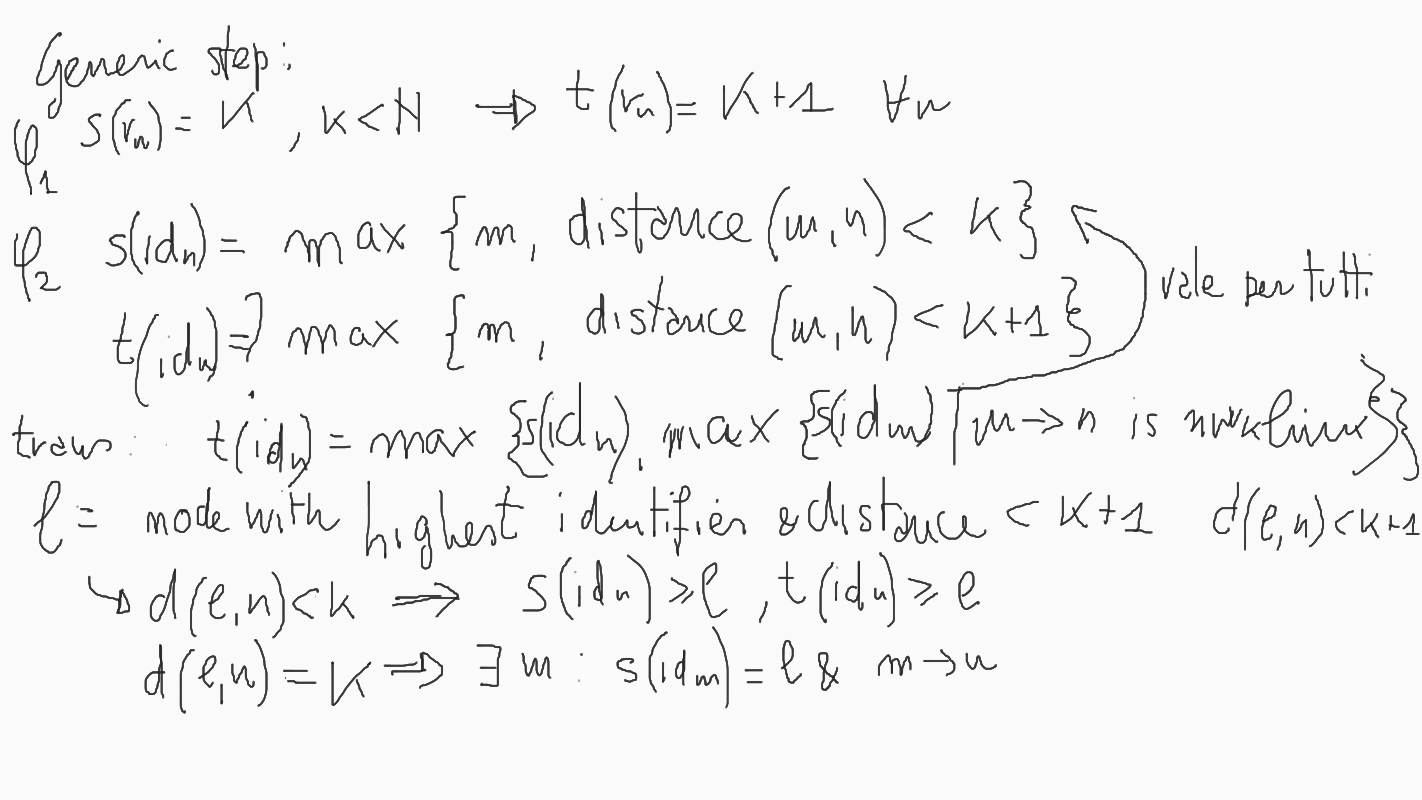 Generic step:
φ₁ s(rₙ) = K , K < N ⇒ t(rₙ) = K+1 ∀n
φ₂ s(idₙ) = max {m, distance (m,n) < K}
t(idₙ) =? max {m, distance (m,n) < K+1}
vale per tutti
trans: t(idₙ) = max {s(idₙ), max {s(idₘ) | m → n is }}
ℓ = node with highest identifier & distance < K+1 d(ℓ,n) < K+1
↳ d(ℓ,n) < K ⇒ s(idₙ) ⩾ ℓ , t(idₙ) ⩾ ℓ
d(ℓ,n) = K ⇒ ∃ m : s(idₘ) = ℓ & m → n